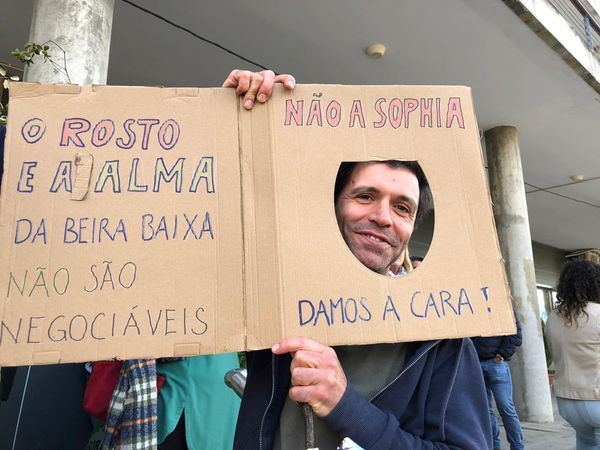 O ROSTO
E A ALMA
DA BEIRA BAIXA
NÃO SÃO
NEGOCIÁVEIS
NÃO A SOPHIA
DAMOS A CARA !